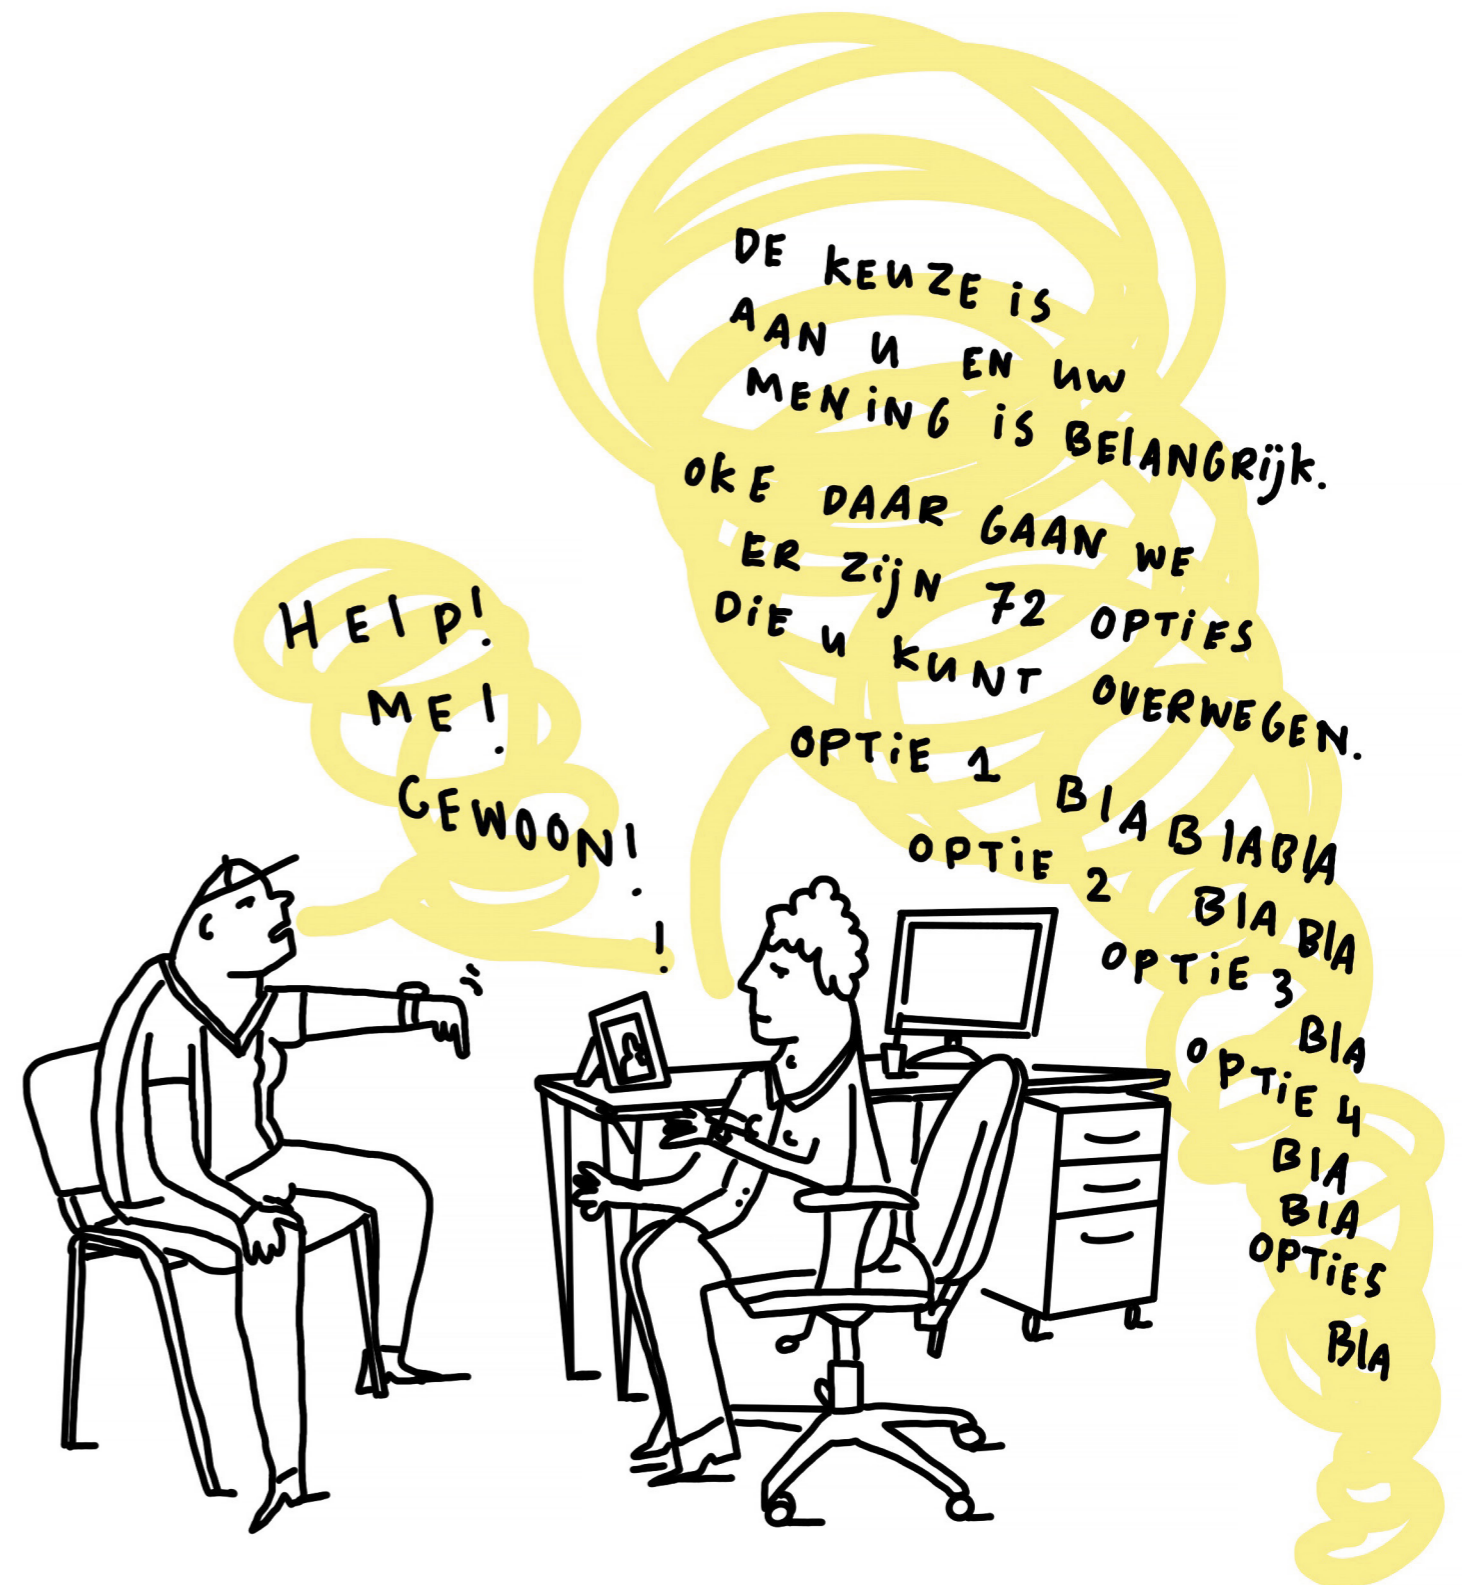 HElp!
ME!
GEWOON!
!
DE KEUZE iS
AAN U EN UW
MENiNG iS BElANGRijk.
OKE DAAR GAAN WE
ER ZijN 72 OPTiES
DiE U KUNT OVERWEGEN.
OPTiE 1 BlABlABlA
OPTiE 2 BlA BlA
OPTiE 3 BlA
OPTiE 4
BlA
BlA
OPTiES
BlA